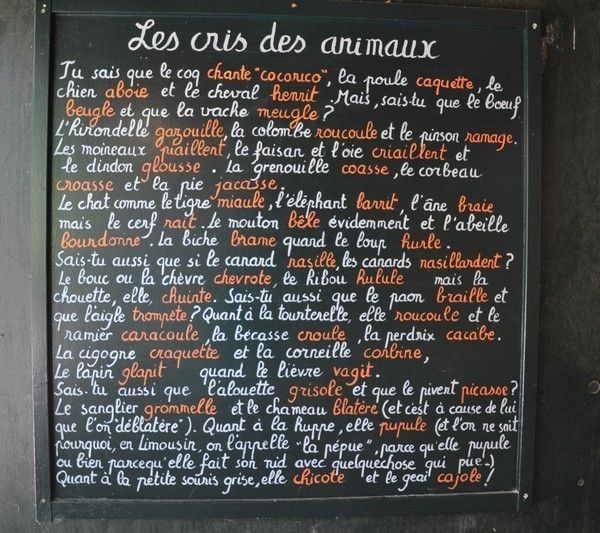 Les cris des animaux
Tu sais que le coq chante "cocorico", la poule caquette, le
chien aboie et le cheval hennit. Mais, sais-tu que le bœuf
beugle et que la vache meugle ?
L'hirondelle gazouille, la colombe roucoule et le pinson ramage.
Les moineaux piaillent, le faisan et l'oie criaillent et
le dindon glousse. La grenouille coasse, le corbeau
croasse et la pie jacasse.
Le chat comme le tigre miaule, l'éléphant barrit, l'âne braie
mais le cerf rait. Le mouton bêle évidemment et l'abeille
bourdonne. La biche brame quand le loup hurle.
Sais-tu aussi que si le canard nasille, les canards nasillardent ?
Le bouc ou la chèvre chevrote, le hibou hulule mais la
chouette, elle, chuinte. Sais-tu aussi que le paon braille et
que l'aigle trompète ? Quant à la tourterelle, elle roucoule et le
ramier caracoule, la bécasse croule, la perdrix cacabe.
La cigogne craquette et la corneille corbine,
Le lapin glapit quand le lièvre vagit.
Sais-tu aussi que l'alouette grisole et que le pivert picasse ?
Le sanglier grommelle et le chameau blatère (et c'est à cause de lui
que l'on "déblatère"). Quant à la huppe, elle pupule (et l'on ne sait
pourquoi, en Limousin, on l'appelle "la pépue", parce qu'elle pupule
ou bien parcequ'elle fait son nid avec quelquechose qui pue...)
Quant à la petite souris grise, elle chicote et le geai cajole !